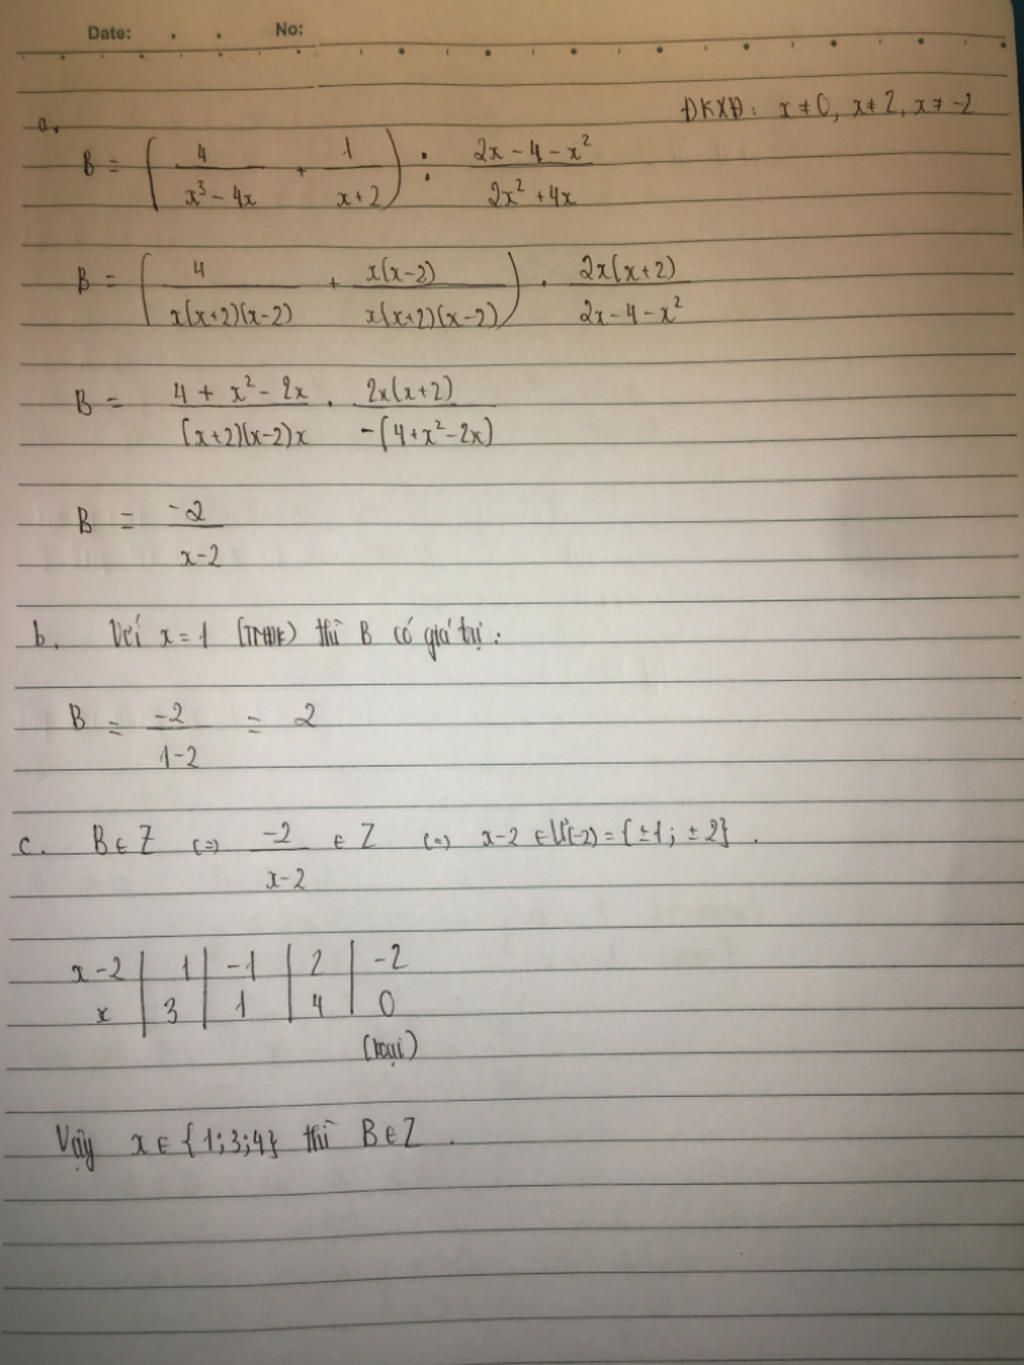 Date: . . No:
ĐKXĐ: x ≠ 0, x ≠ 2, x ≠ -2
a.
B = ( 4/(x³ - 4x) + 1/(x+2) ) : (2x - 4 - x²)/(2x² + 4x)
B = ( 4/(x(x+2)(x-2)) + x(x-2)/(x(x+2)(x-2)) ) . 2x(x+2)/(2x - 4 - x²)
B = (4 + x² - 2x)/((x+2)(x-2)x) . 2x(x+2)/(-(4+x²-2x))
B = -2/(x-2)
b. Với x = 1 (TMĐK) thì B có giá trị:
B = -2/(1-2) = 2
c. B ∈ Z (=) -2/(x-2) ∈ Z (=) x-2 ∈ Ư(-2) = {±1; ±2}.
x-2 | 1 | -1 | 2 | -2
x | 3 | 1 | 4 | 0
(loại)
Vậy x ∈ {1;3;4} thì B ∈ Z.